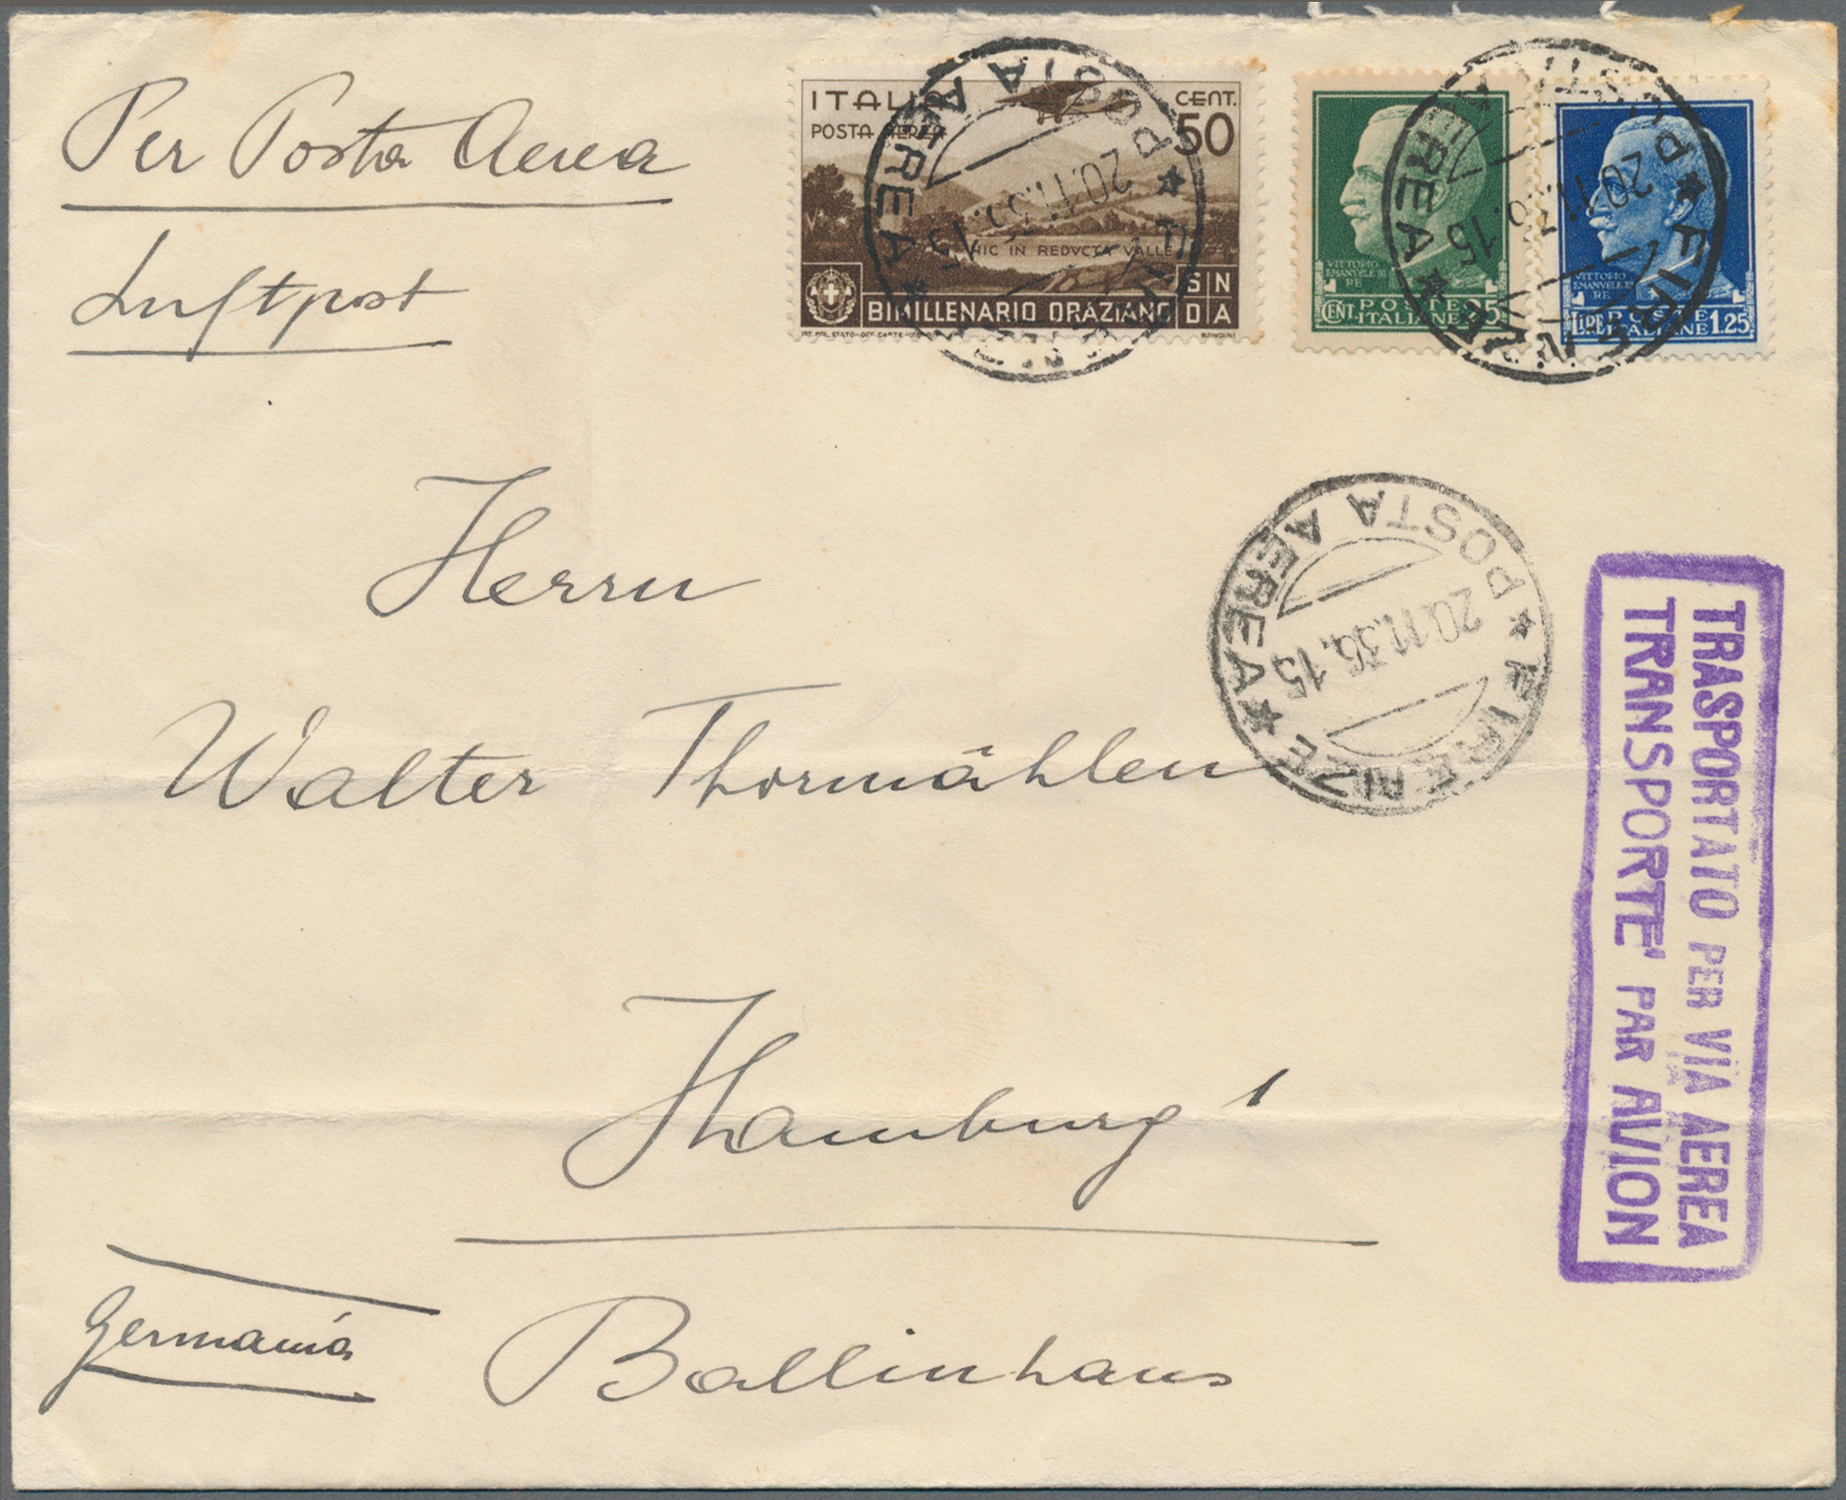 Per Posta Aerea
Luftpost
ITALIA
POSTA AEREA
CENT.
50
HIC IN REDVCTA VALLE
BIMILLENARIO ORAZIANO
S N
D A
VITTORIO
EMANVELE III
RE
CENT. POSTE
ITALIANE 25
VITTORIO
EMANVELE III
RE
LIRE POSTE
ITALIANE 1.25
POSTA AEREA
FIRENZE
20.11.36.15
POSTA AEREA
FIRENZE
20.11.36.15
Herrn
POSTA AEREA
20.11.36.15
FIRENZE
Walter Thormählen
TRASPORTATO PER VIA AEREA
TRANSPORTE' PAR AVION
Hamburg 1
Germania
Ballinhaus